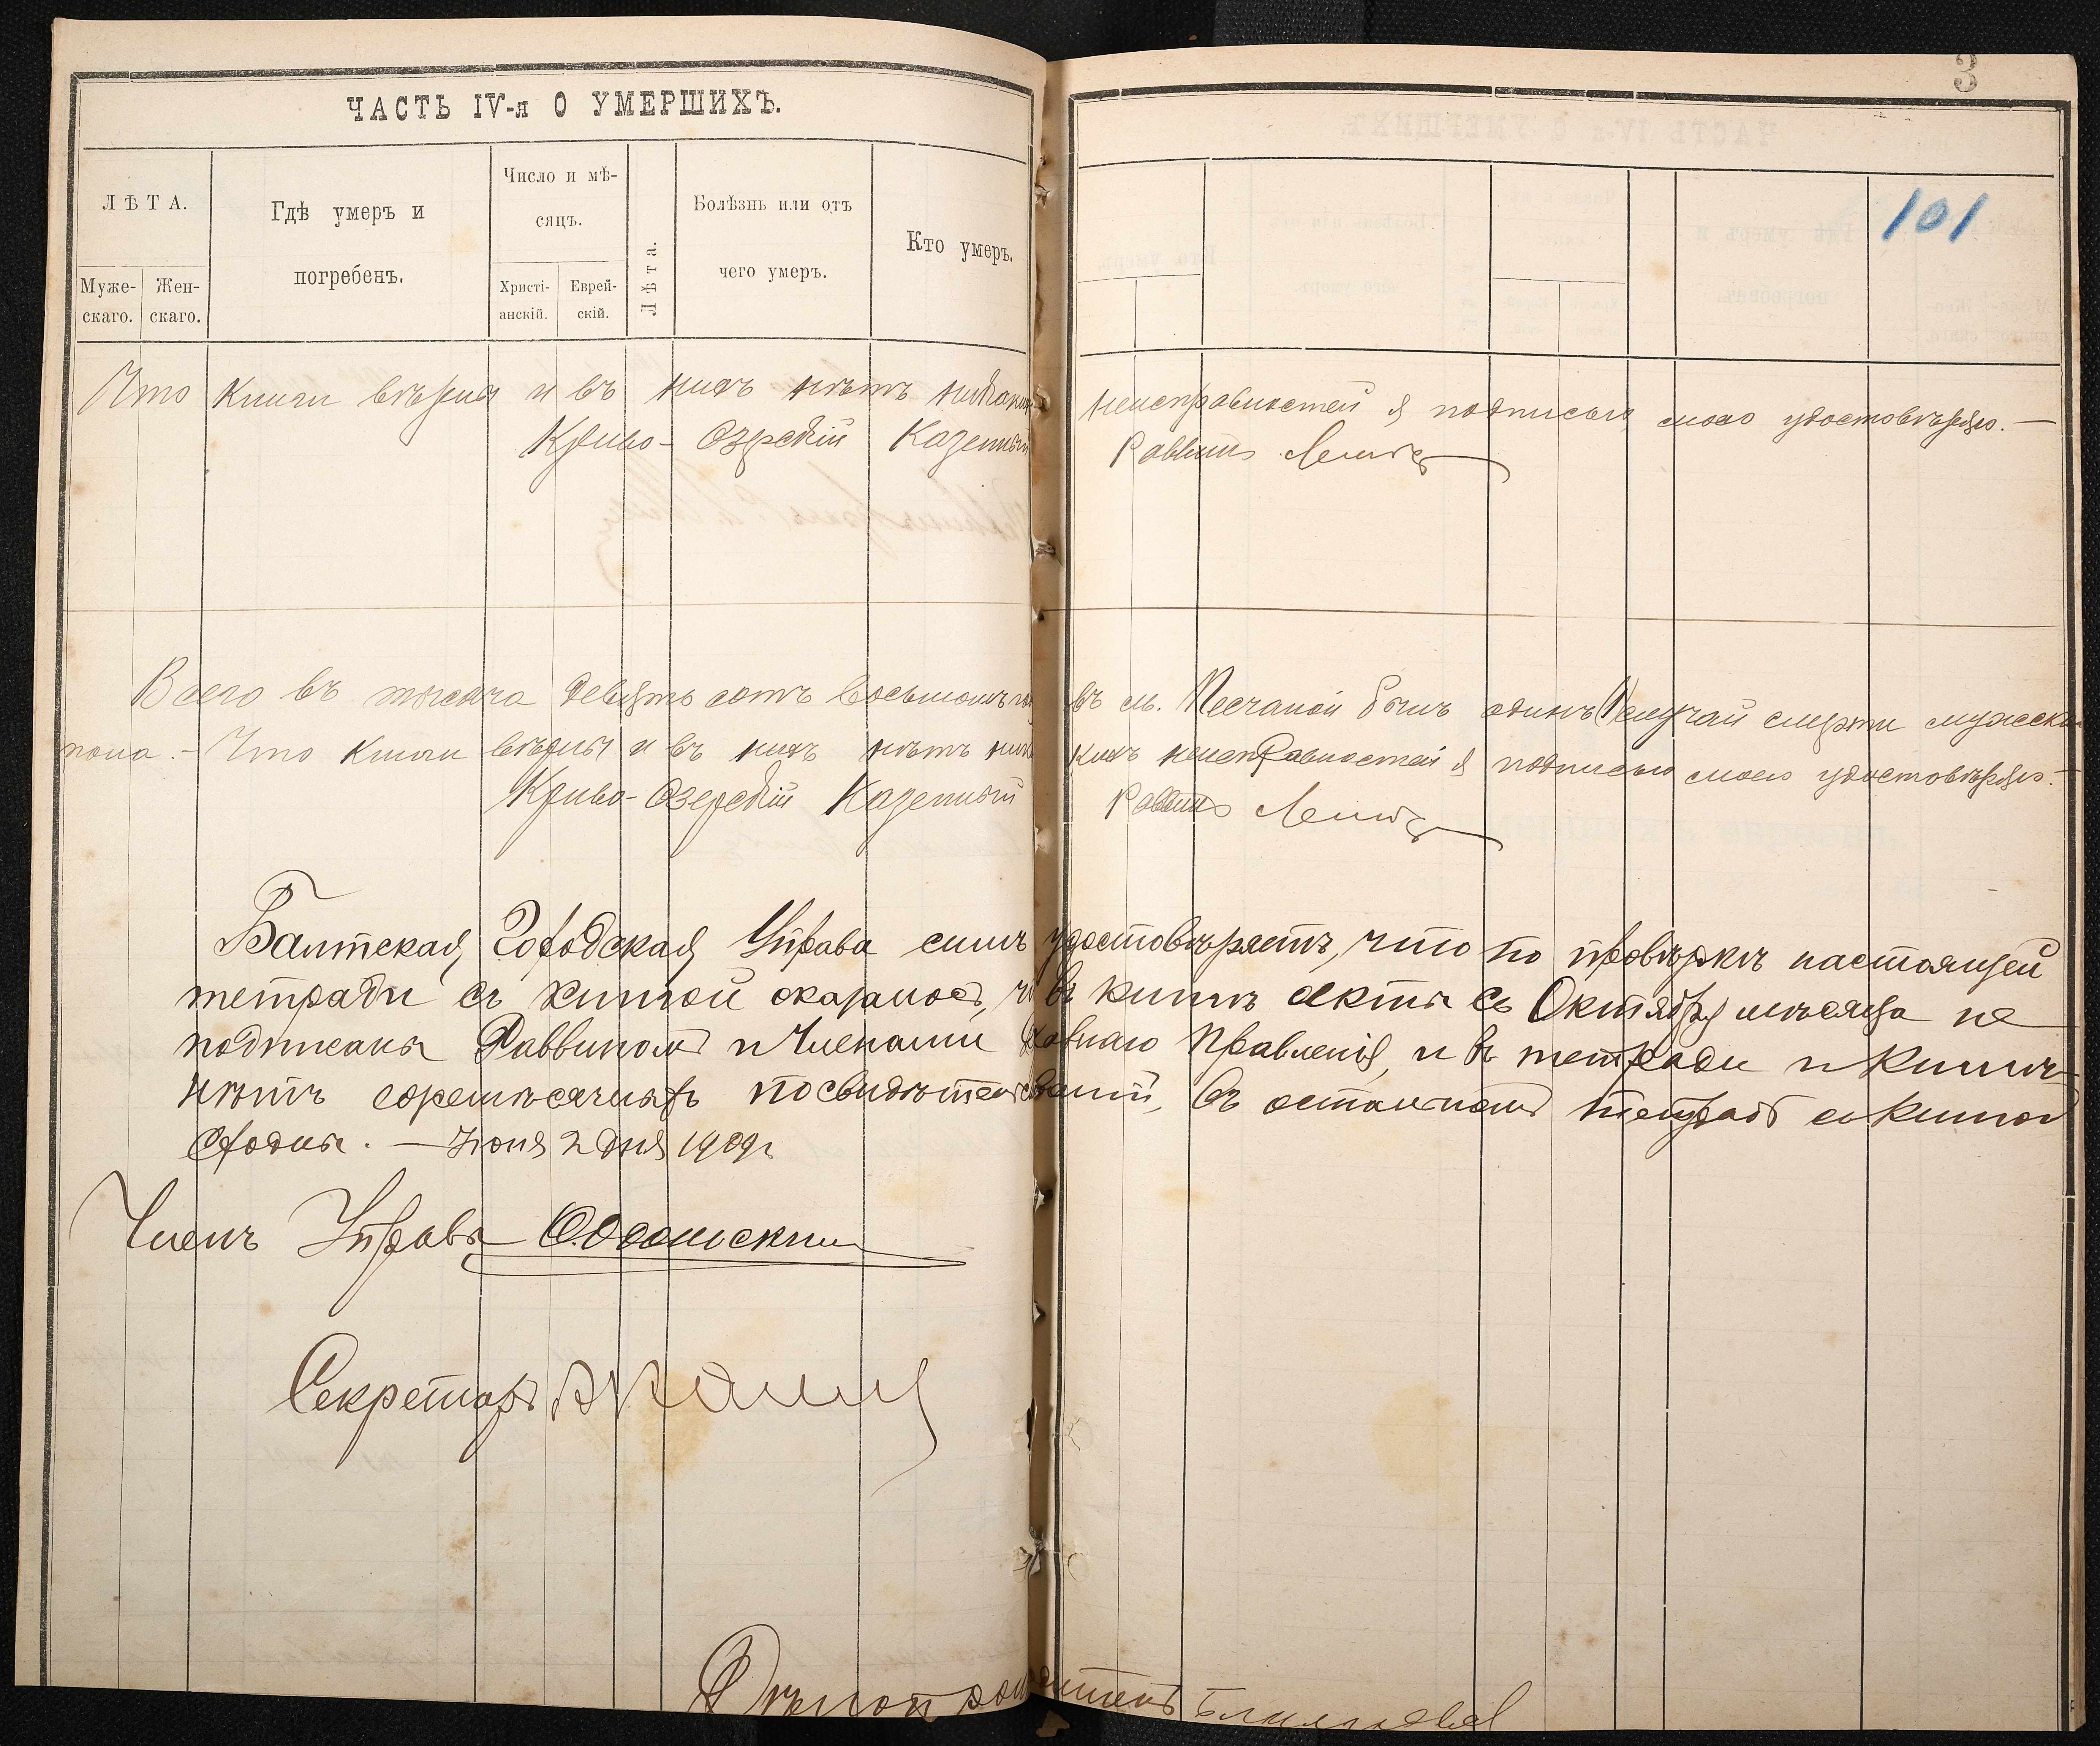 3
ЧАСТЬ IV-я О УМЕРШИХЪ.
101
ЛѢТА.
Муже-
скаго.
Жен-
скаго.
Гдѣ умеръ и
погребенъ.
Число и мѣ-
сяцъ.
Христі-
анскій.
Еврей-
скій.
Лѣта.
Болѣзнь или отъ
чего умеръ.
Кто умеръ.
Что книги вѣрны и въ нихъ нѣтъ никакихъ неисправностей я подписью моею удостовѣряю.—
Криво-Озерскій Казенный Раввинъ
Всего въ тысяча девять сотъ восьмомъ въ м. Песчаной былъ одинъ случай смерти мужска
пола.- Что книги вѣрны и въ нихъ нѣтъ никакихъ неисправностей я подписью моею удостовѣряю.-
Криво-Озерскій Казенный Раввинъ
Балтская Городская Управа симъ удостовѣряетъ, что по провѣркѣ настоящей
тетради съ книгой оказалось, ч въ книгѣ акты съ Октября мѣсяца не
подписаны Раввиномъ и Членами Правленія, и въ тетради и книгѣ
нѣтъ посвидѣтельствованій, въ остальномъ тетрадь съ книгой
сходны. — Іюня 2 дня 1909 г
Членъ Управы
Секретарь
Дѣлопроизводитель